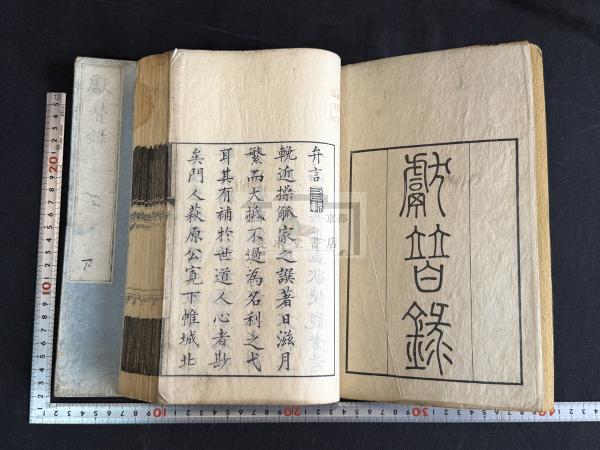 獻替錄
弁言
輓近操觚家之譔著日滋月
繁而大抵不過為名利之弋
耳其有補於世道人心者尠
矣門人萩原公寛下帷城北
獻替錄
下
京都
書店